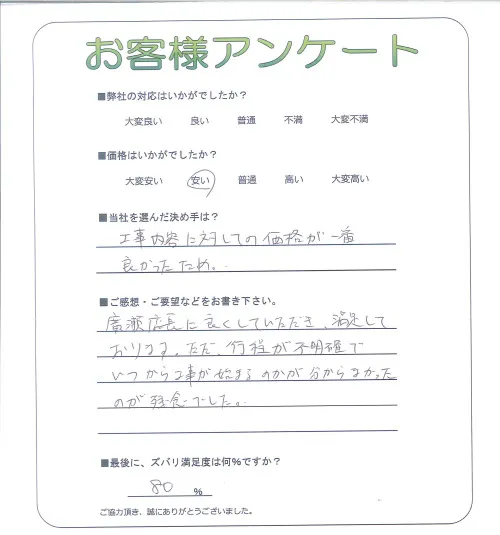 お客様アンケート
■弊社の対応はいかがでしたか?
大変良い 良い 普通 不満 大変不満
■価格はいかがでしたか?
大変安い 安い 普通 高い 大変高い
■当社を選んだ決め手は?
工事内容に対しての価格が一番
良かったため。
■ご感想・ご要望などをお書き下さい。
廣瀬店長に良くしていただき、満足して
おります。ただ、行程が不明確で
いつから工事が始まるのかが分からなかった
のが残念でした。
■最後に、ズバリ満足度は何%ですか?
80 %
ご協力頂き、誠にありがとうございました。